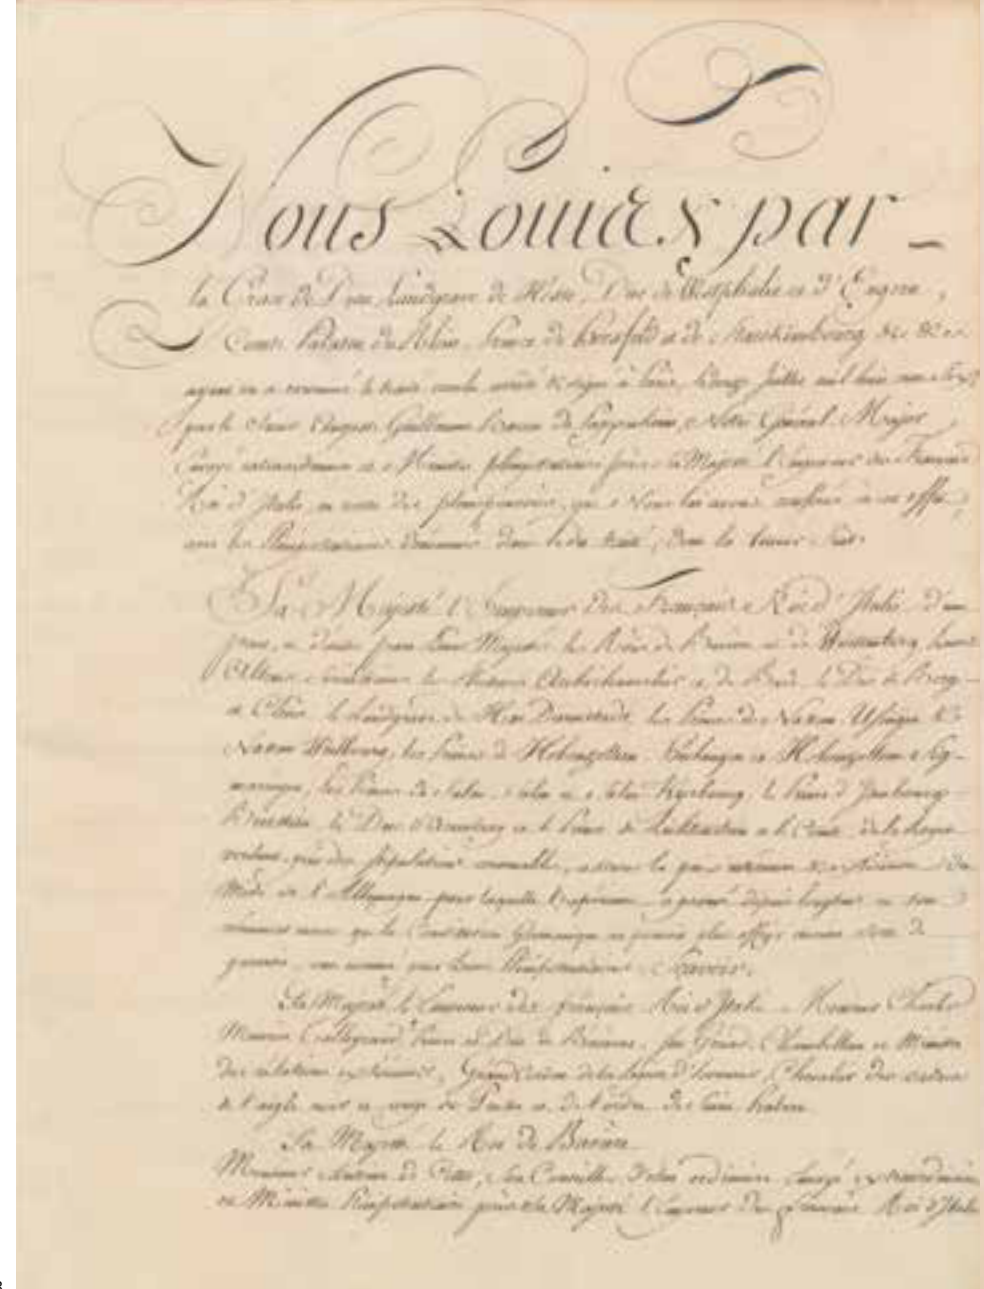 Nous Louis X par
la Grace de Dieu, Landgrave de Hesse, Duc de Westphalie et d'Engern,
Comte Palatin du Rhin, Prince de Hersfeld et de Starckembourg &c &c &c
ayant vu et examiné le traité conclu arrêté & signé à Paris, le douze Juillet mil huit cent Six
par le Sieur Auguste Guillaume Baron de Pappenheim, Notre Général Major
Envoyé extraordinaire et Ministre plénipotentiaire près Sa Majesté l'Empereur des Français
Roi d'Italie, en vertu des pleinpouvoirs, que Nous lui avons conférés à cet effet,
avec les Plénipotentiaires dénommés dans le dit traité, dont la teneur Suit.
Sa Majesté l'Empereur des Français, Roi d'Italie d'une
part, et d'autre part Leurs Majestés les Rois de Bavière et de Wurtemberg, Leurs
Altesses Sérénissimes les Electeurs Archichancelier et de Bade, le Duc de Berg
et Clèves, le Landgrave de Hesse Darmstadt, les Princes de Nassau Usingen &
Nassau Weilbourg, les Princes de Hohenzollern Hechingen et Hohenzollern Sig-
maringen, les Princes de Salm Salm et Salm Kyrbourg, le Prince d'Isenbourg
Birstein, le Duc d'Aremberg et le Prince de Lichtenstein et le Comte de la Leyen
voulant, par des stipulations convenables, assurer la paix intérieure & extérieure du
Midi de l'Allemagne pour laquelle l'expérience a prouvé depuis longtems et tout
récemment encore que la Constitution Germanique ne pouvoit plus offrir aucune Sorte de
garantie, ont nommé pour leurs Plénipotentiaires Savoir.
Sa Majesté l'Empereur des français Roi d'Italie, Monsieur Charles
Maurice Talleyrand, Prince et Duc de Bénévent, Son Grand Chambellan et Ministre
des relations extérieures, Grand Cordon de la Légion d'honneur, Chevalier des ordres
de l'aigle noir et rouge de Prusse et de l'ordre de Saint Hubert
Sa Majesté le Roi de Bavière
Monsieur Antoine de Cetto, Son Conseiller d'état ordinaire Envoyé extraordinaire
et Ministre Plénipotentiaire près Sa Majesté l'Empereur des Français Roi d'Italie